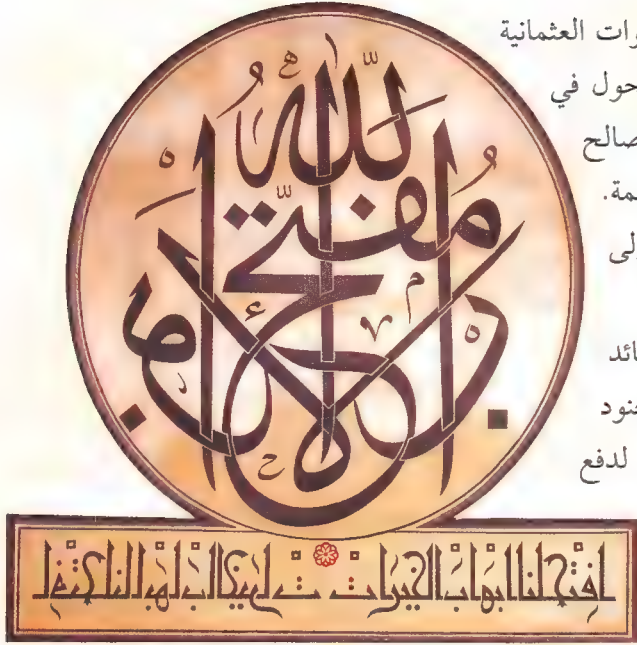 ورات العثمانية
حول في
صالح
مة.
لى
ائد
نود
لدفع
الله
مفتح
الابواب
افتح لنا ابواب الخيرات